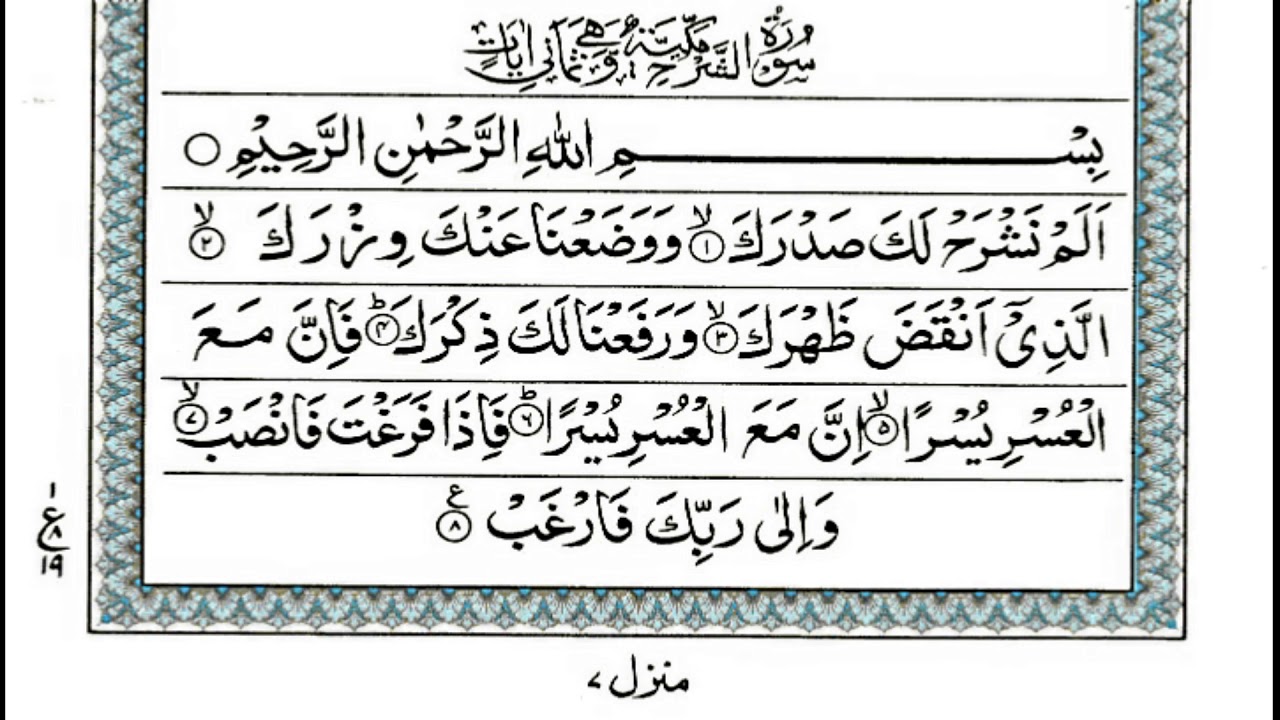 سُوْرَةُ الشَّرْحِ مَكِّيَّةٌ وَّهِيَ ثَمَانِيْ اٰيَاتٍ
بِسْمِ اللّٰهِ الرَّحْمٰنِ الرَّحِيْمِ ○
اَلَمْ نَشْرَحْ لَكَ صَدْرَكَ ۙ﴿۱﴾ وَوَضَعْنَا عَنْكَ وِزْرَكَ ۙ﴿۲﴾
الَّذِيْۤ اَنْقَضَ ظَهْرَكَ ۙ﴿۳﴾ وَرَفَعْنَا لَكَ ذِكْرَكَ ؕ﴿۴﴾ فَاِنَّ مَعَ
الْعُسْرِ يُسْرًا ۙ﴿۵﴾ اِنَّ مَعَ الْعُسْرِ يُسْرًا ؕ﴿۶﴾ فَاِذَا فَرَغْتَ فَانْصَبْ ۙ﴿۷﴾
وَاِلٰى رَبِّكَ فَارْغَبْ ﴿۸﴾ ع
۱
ع
۸
۱۹
منزل ۷